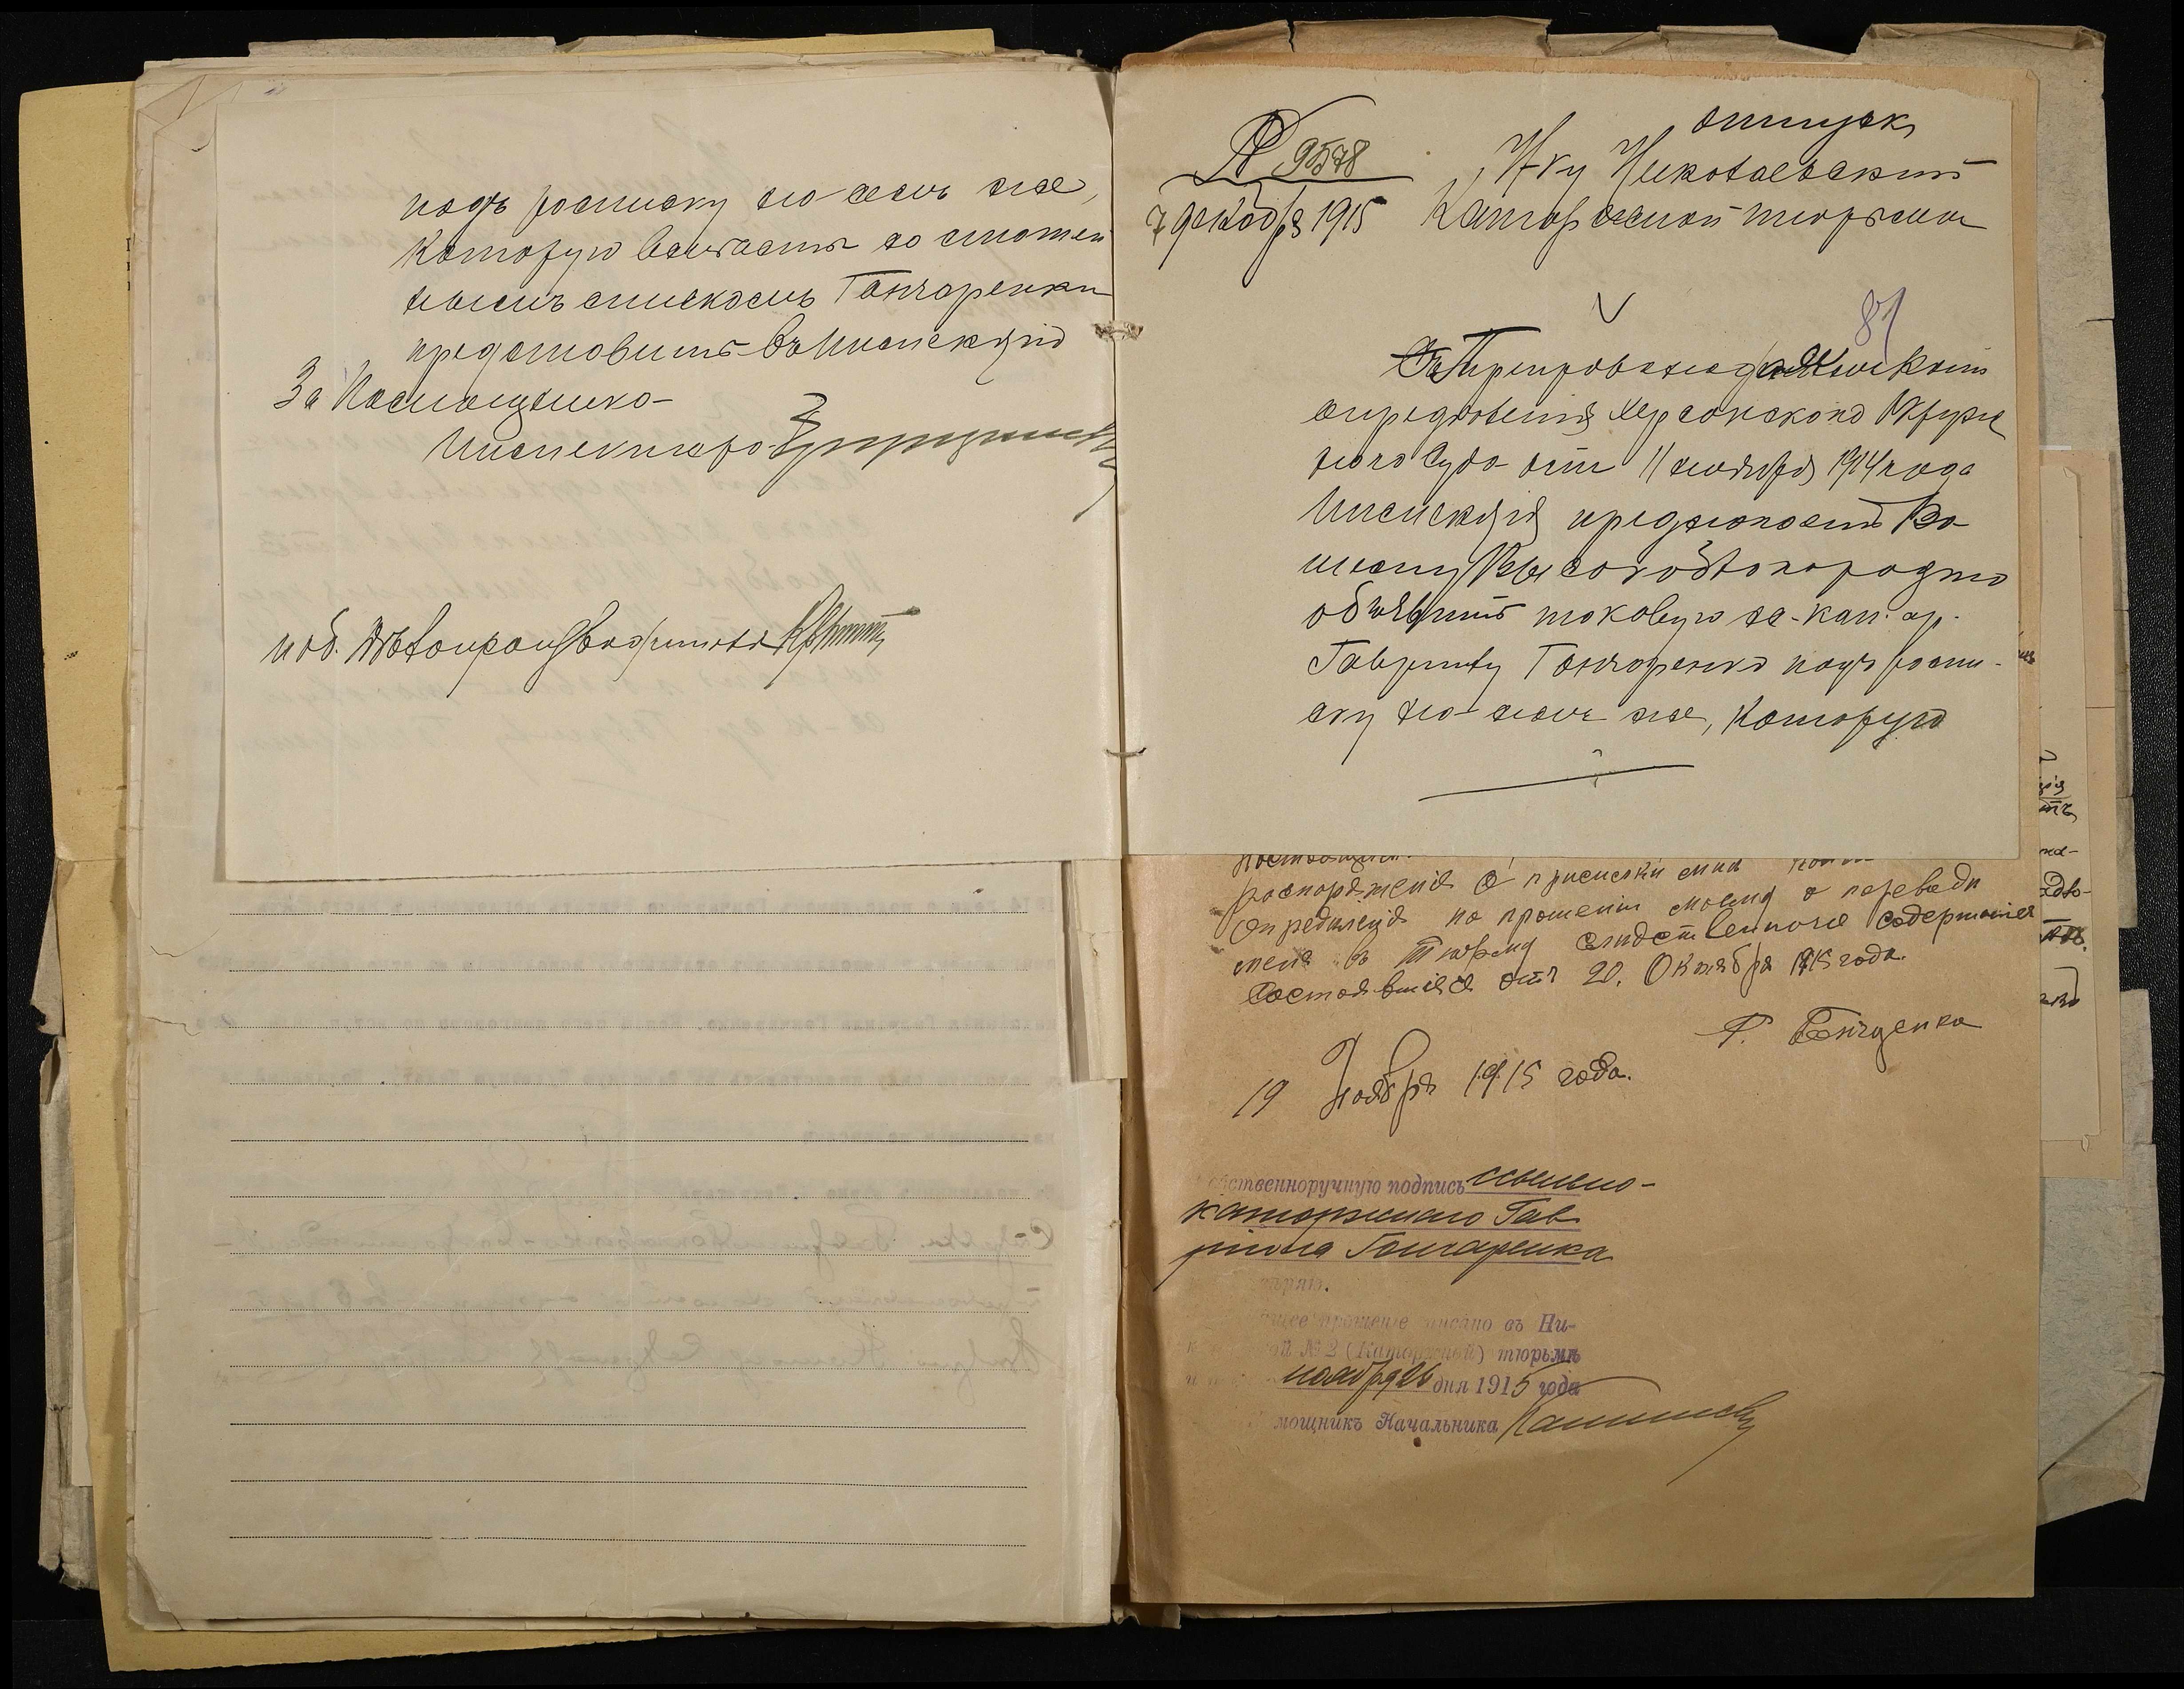 подъ росписку на немъ же,
которую вмѣстѣ со статей
нымъ спискомъ Гончаренки
представить въ Инспекцію
За Помощника
Инспектора
и об. Дѣлопроизводителя
отпускъ
№ 9578
7 декабря 1915
Н-ку Николаевской
Каторжной тюрьмы
81
Препровождая
опредѣленія Херсонскаго Окруж
наго Суда отъ 11 ноября 1914 года
Инспекція предлагаетъ Ва
шему Высокоблагородію
объявить таковую с-кат. ар.
Гавріилу Гончаренко подъ роспи-
ску на немъ же, которую
распоряженія о присилки мнѣ
определеція по прошенію моему о переводи
меня в тюрьму слидственного содержания
состоявшися отъ 20. Октября 1915 года.
Г. Гончаренко
19 Ноября 1915 года.
ственноручную подпись ссыльно-
каторжнаго Гав
ріила Гончаренка
ряю.
щее прошеніе писано въ Ни-
ой № 2 (Каторжной) тюрьмѣ
ноября 26 дня 1915 года
мощникъ Начальника